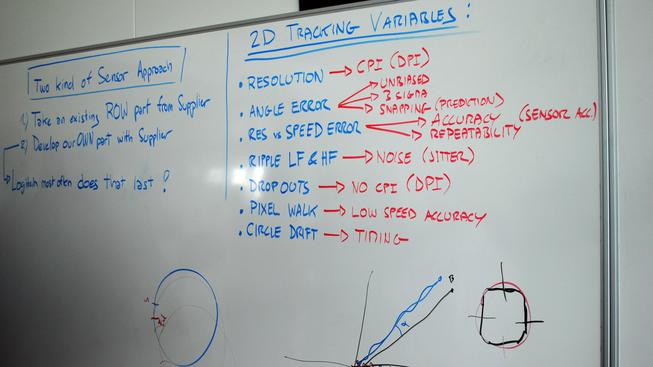 2D TRACKING VARIABLES:
Two kind of Sensor Approach
1) Take an existing ROW part from Supplier
2) Develop our OWN part with Supplier
Logitech most often does that last ?
• RESOLUTION → CPI (DPI)
• ANGLE ERROR → UNBIASED
→ 3 SIGMA
→ SNAPPING (PREDICTION)
• RES vs SPEED ERROR → ACCURACY (SENSOR ACC.)
→ REPEATABILITY
• RIPPLE LF & HF → NOISE (JITTER)
• DROPOUTS → NO CPI (DPI)
• PIXEL WALK → LOW SPEED ACCURACY
• CIRCLE DRIFT → TIMING
B
α